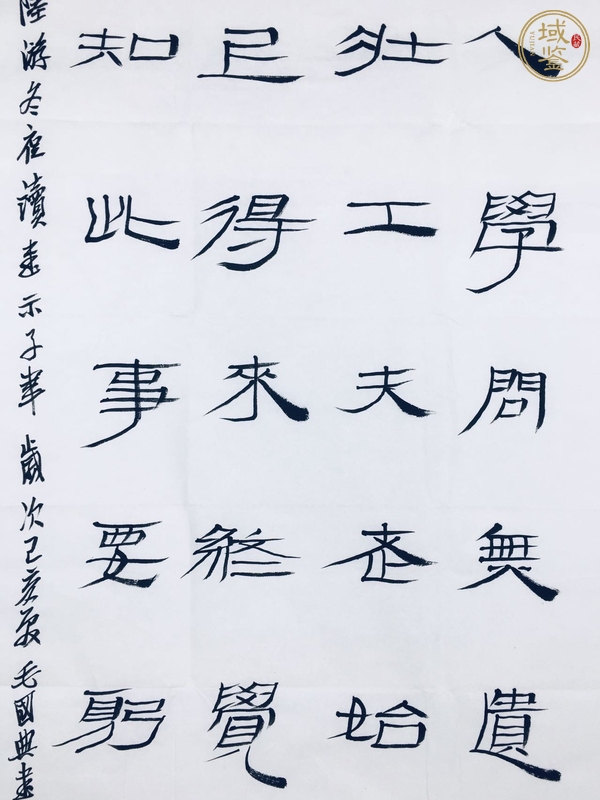 人學問無遺
壯工夫老始
得來終覺
知此事要躬
陸游冬夜讀書示子聿 歲次己亥夏 毛國典書
域鉴